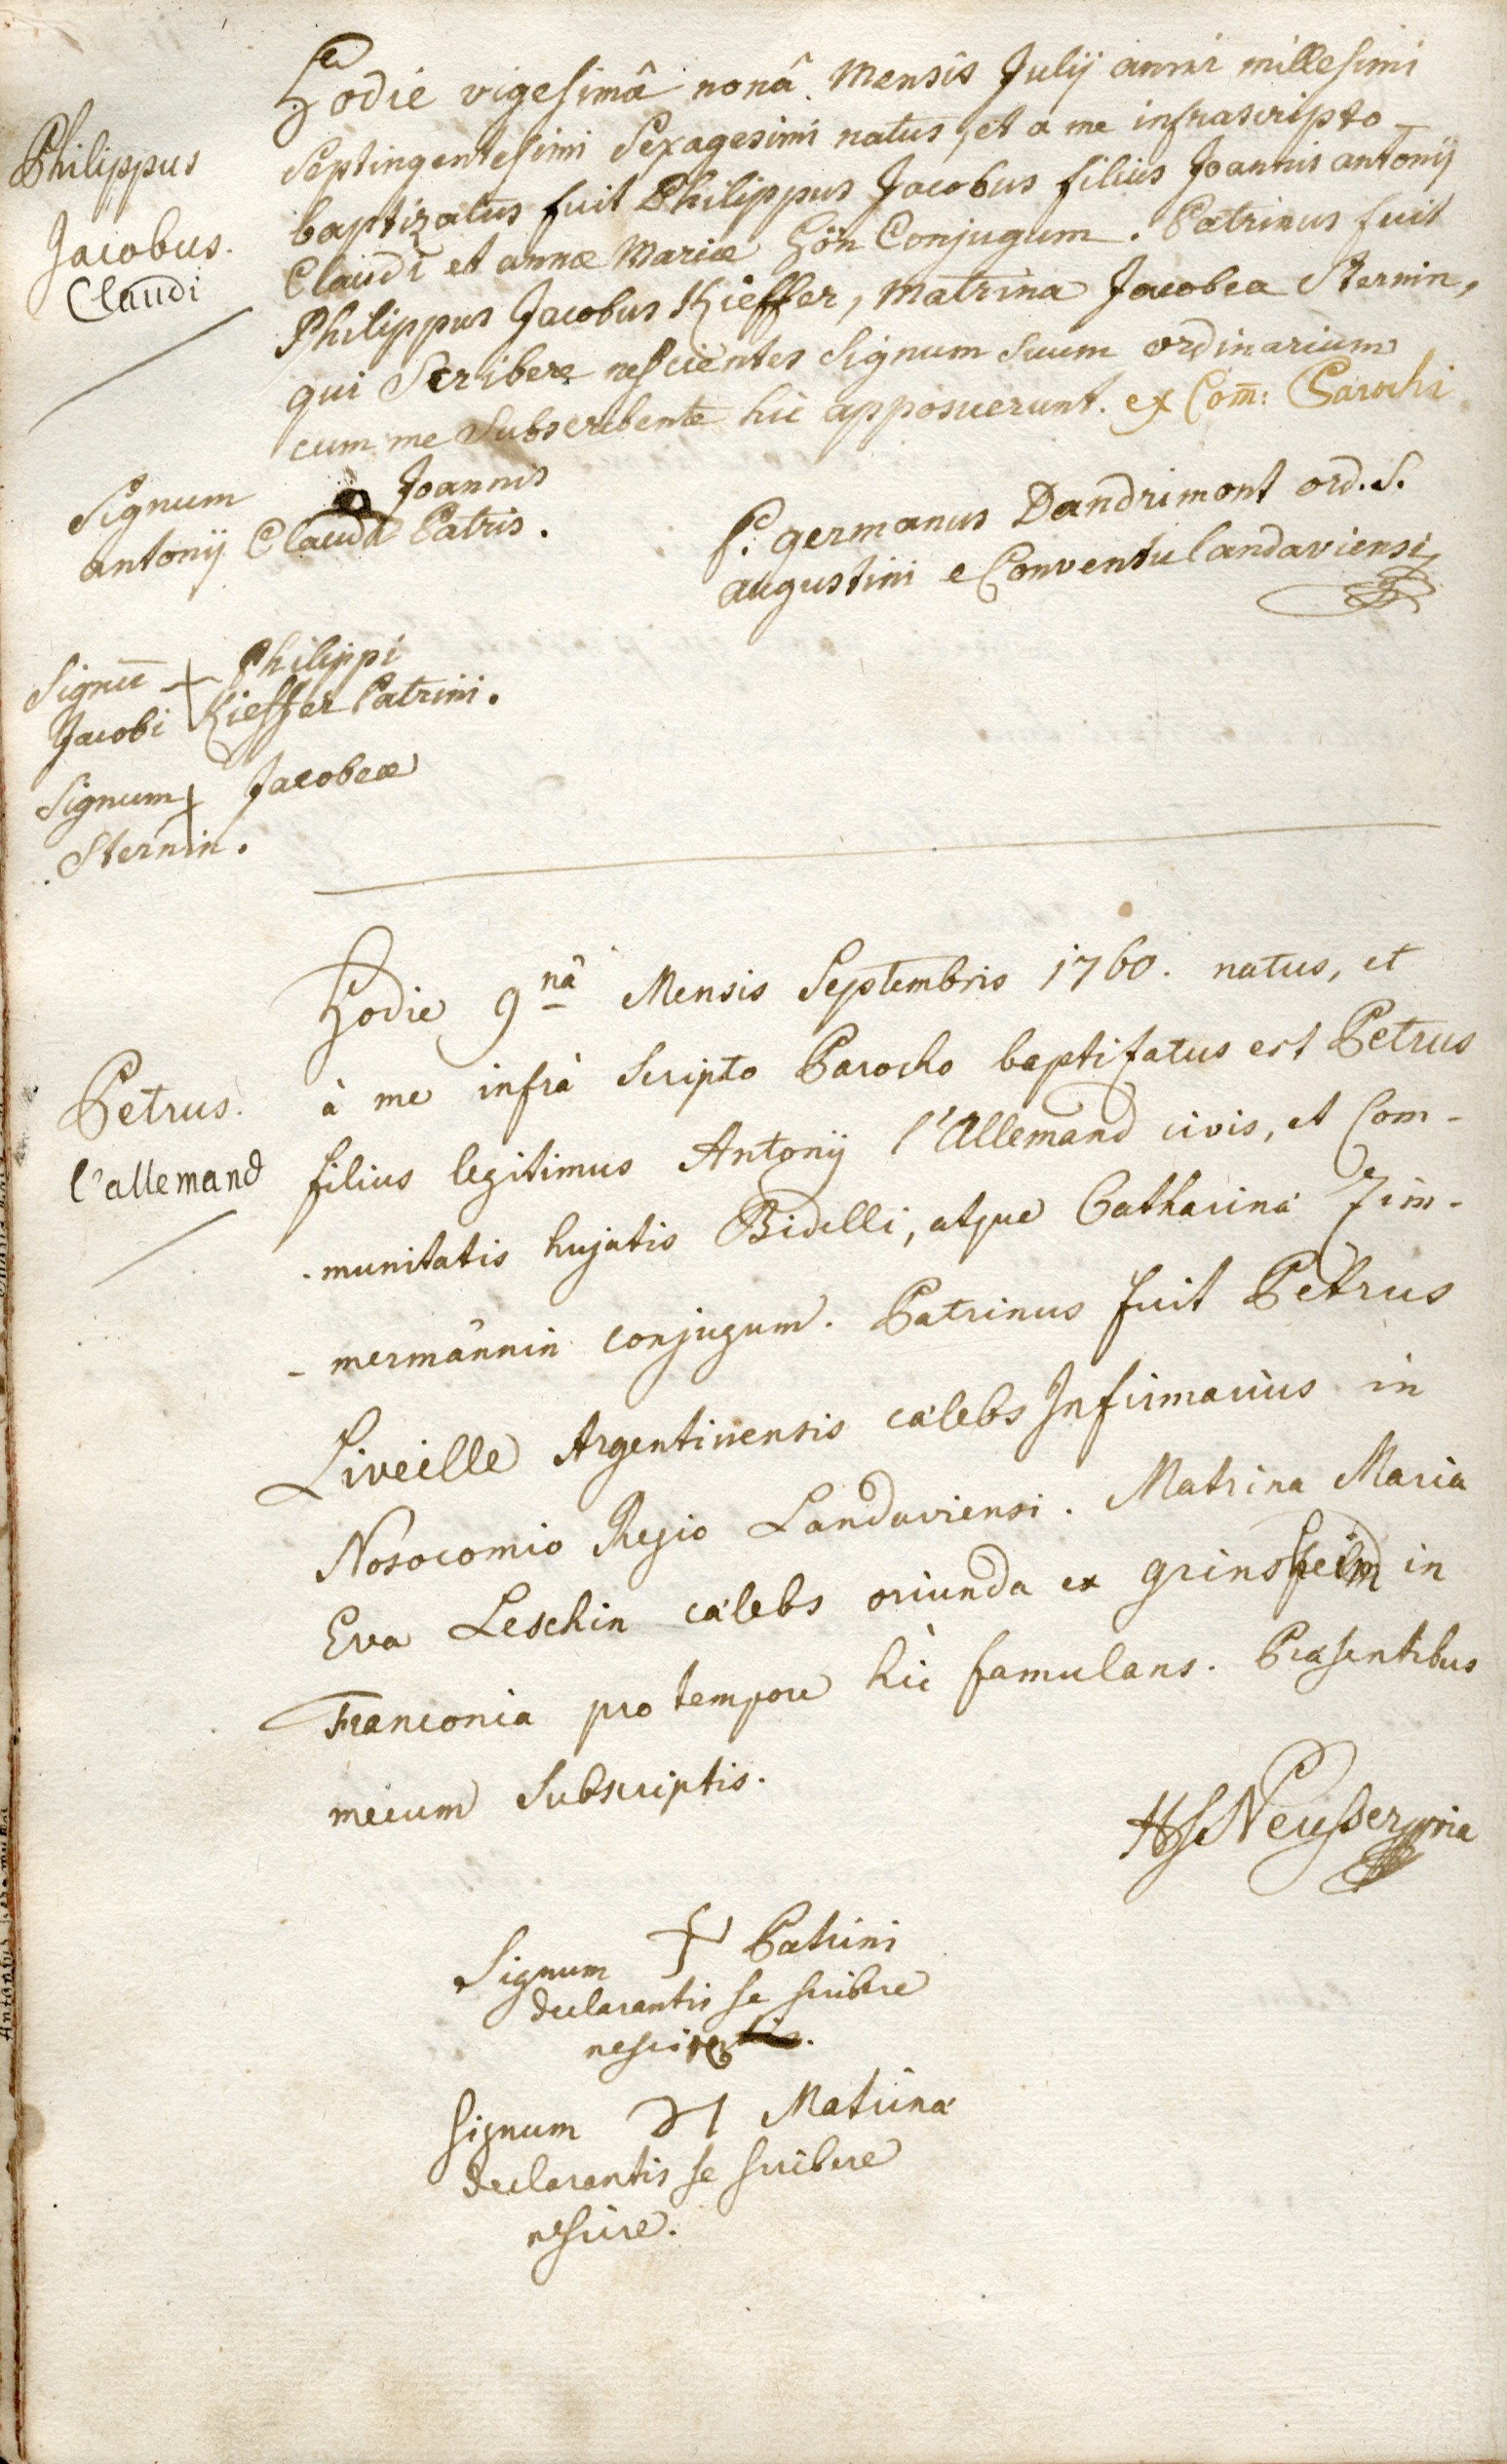 Hodie vigesimâ nonâ Mensis Julij anni millesimi
septingentesimi sexagesimi natus, et a me infrascripto
baptizatus fuit Philippus Jacobus filius Joannis antonij
Claudi et annæ Mariæ Hön Conjugum. Patrinus fuit
Philippus Jacobus Kieffer, matrina Jacobea Sternin,
qui scribere nescientes signum suum ordinarium
cum me subscribente hic apposuerunt. ex Com̄: Parochi
Philippus
Jacobus.
Claudi
Signum Joannis
antonij Claudi Patris.
P. germanus Dandrimont ord. S.
augustini e Conventu landaviensi
Signū + Philippi
Jacobi Kieffer Patrini.
Signum + Jacobeæ
Sternin.
Hodie 9nâ Mensis Septembris 1760. natus, et
à me infrà scripto Parocho baptisatus est Petrus
filius legitimus Antonij l'Allemand civis, et Com-
-munitatis hujatis Bidelli, atque Catharinæ Zim-
-mermännin conjugum. Patrinus fuit Petrus
Liveille Argentinensis cælebs Infirmarius in
Nosocomio Regio Landaviensi. Matrina Maria
Eva Leschin cælebs oriunda ex in
Franconia pro tempore hic famulans. Præsentibus
mecum subscriptis.
Petrus.
l'allemand
Neusser mria
Signum + Patrini
declarantis se scribere
Signum Matrinæ
declarantis se scribere
nescire.